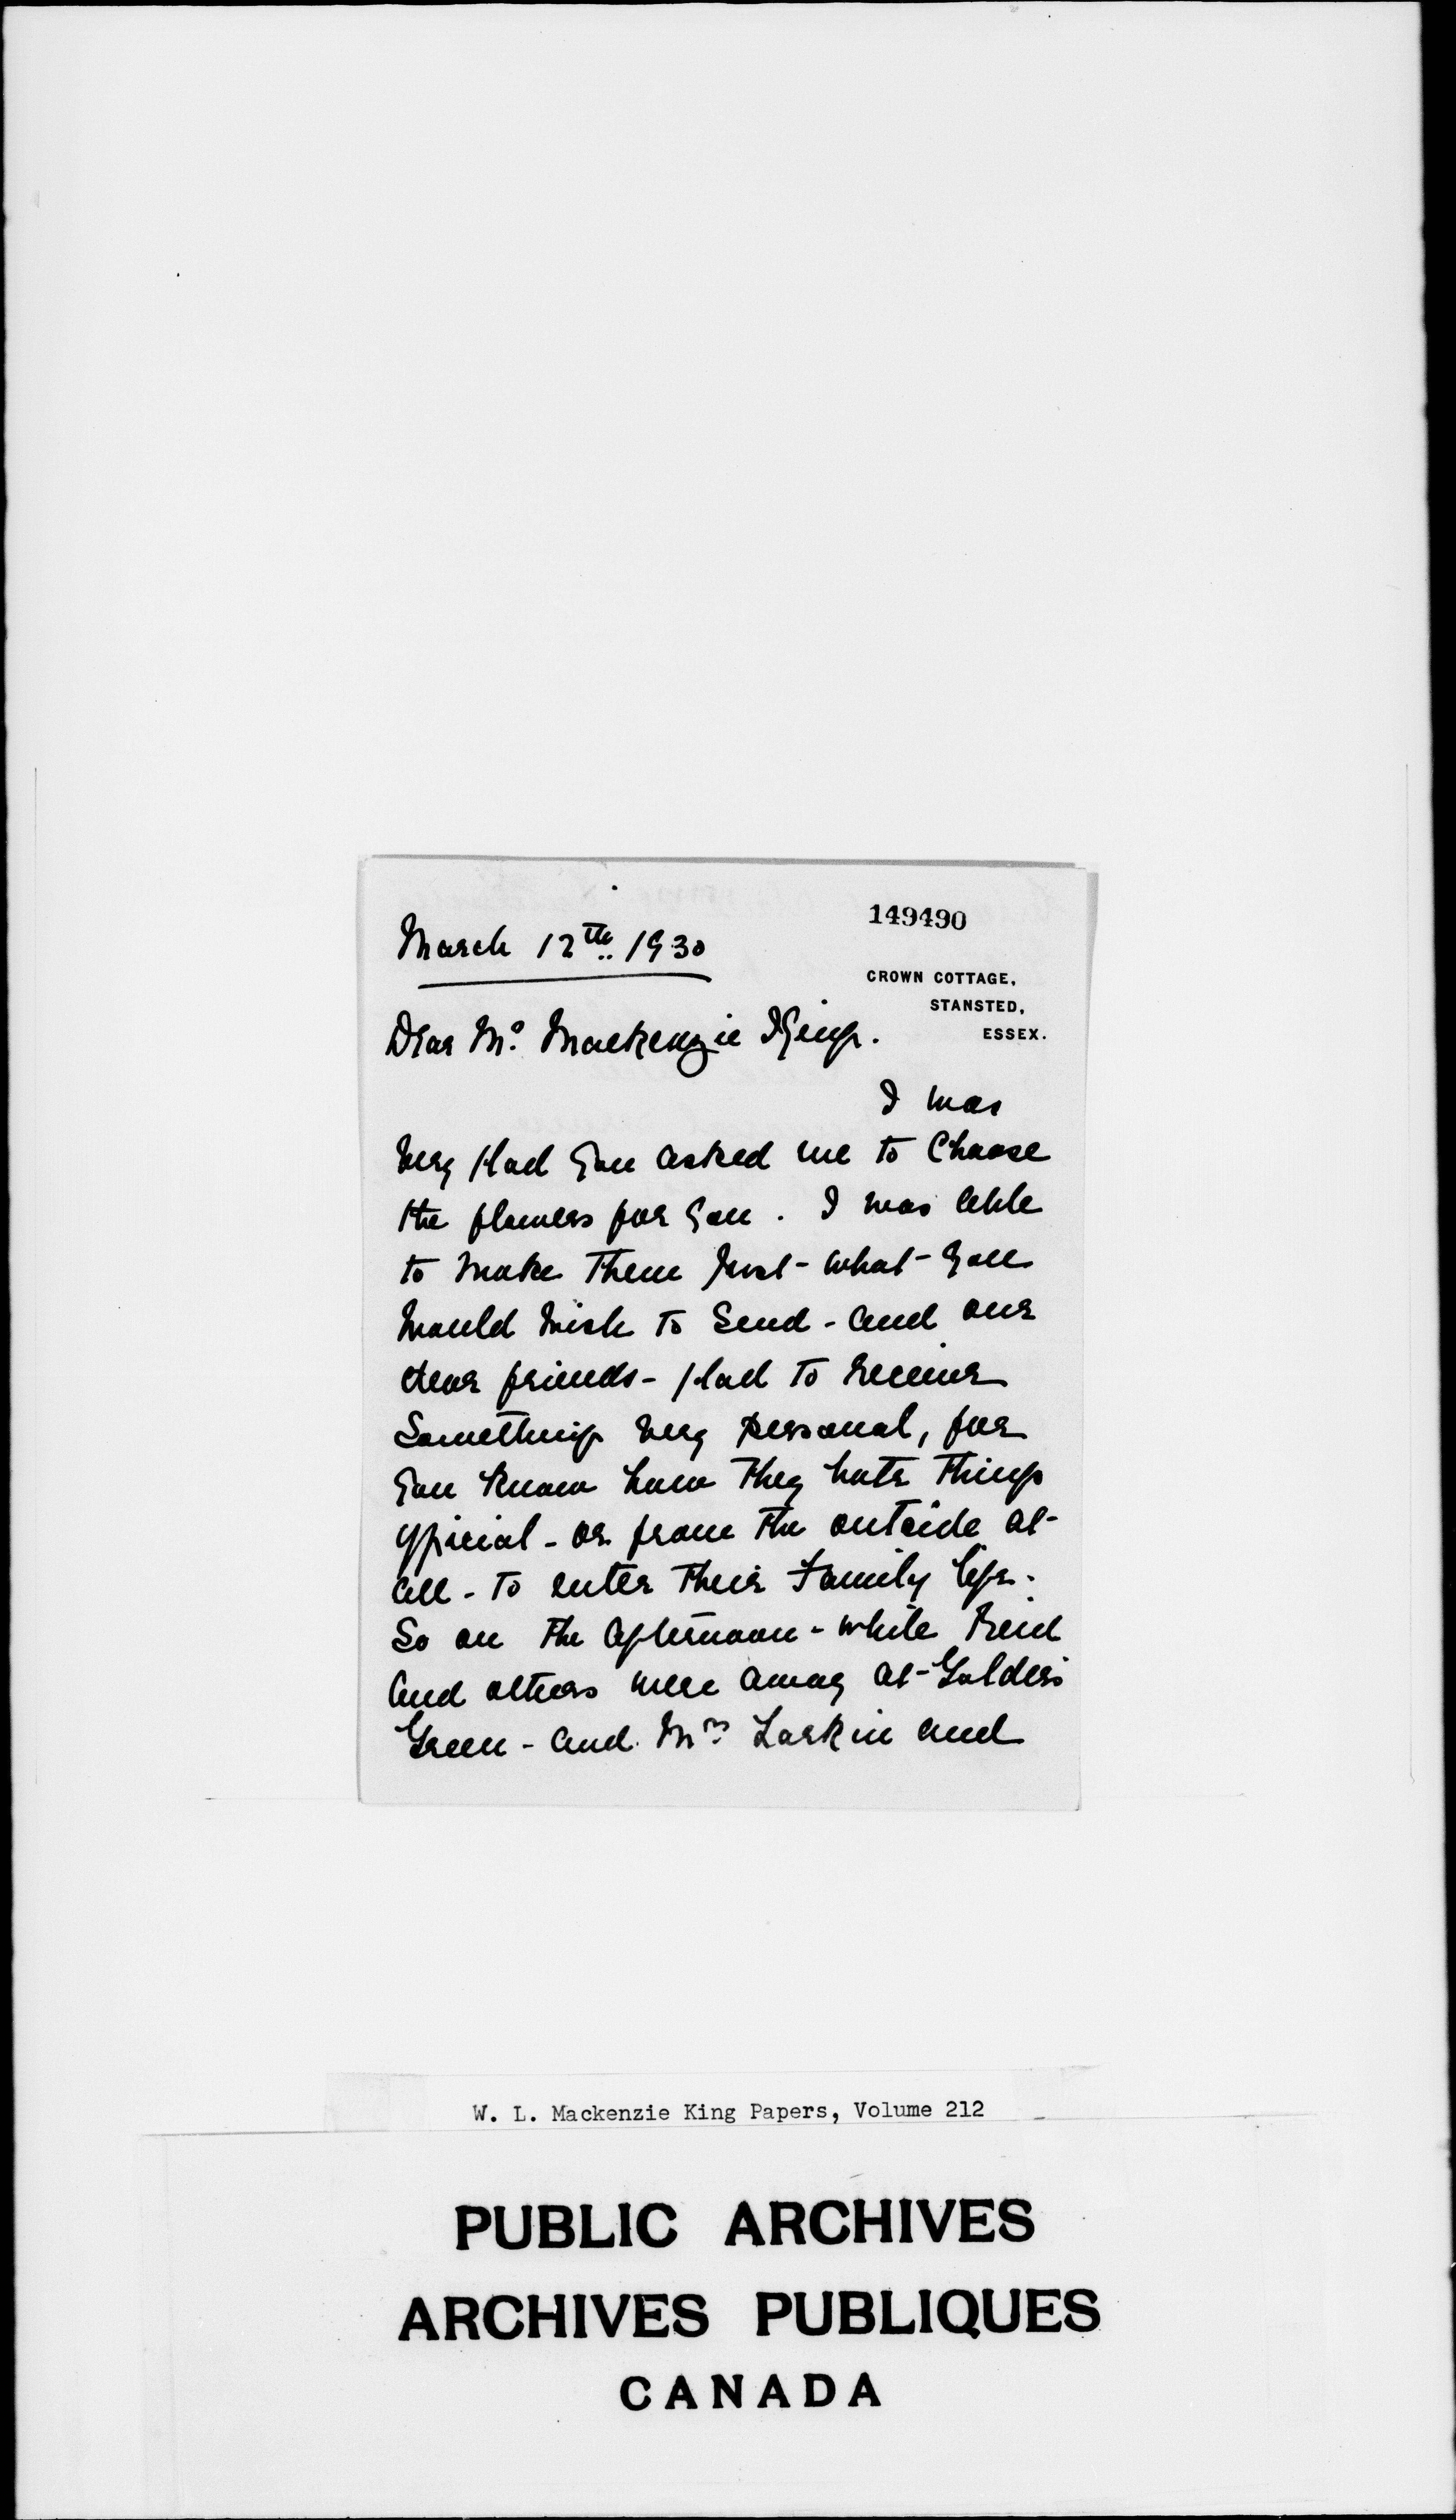 149490
March 12th. 1930
CROWN COTTAGE,
STANSTED,
ESSEX.
Dear Mr. Mackenzie King.
I was
very glad you asked me to choose
the flowers for you. I was able
to make them just - what - you
would wish to send - and our
dear friends - glad to receive
something very personal, for
you know how they hate things
official - or from the outside at -
all - to enter their family life.
So on the afternoon - while Reid
and others were away at - Golders
Green - and Mrs. Larkin and
W. L. Mackenzie King Papers, Volume 212
PUBLIC ARCHIVES
ARCHIVES PUBLIQUES
CANADA